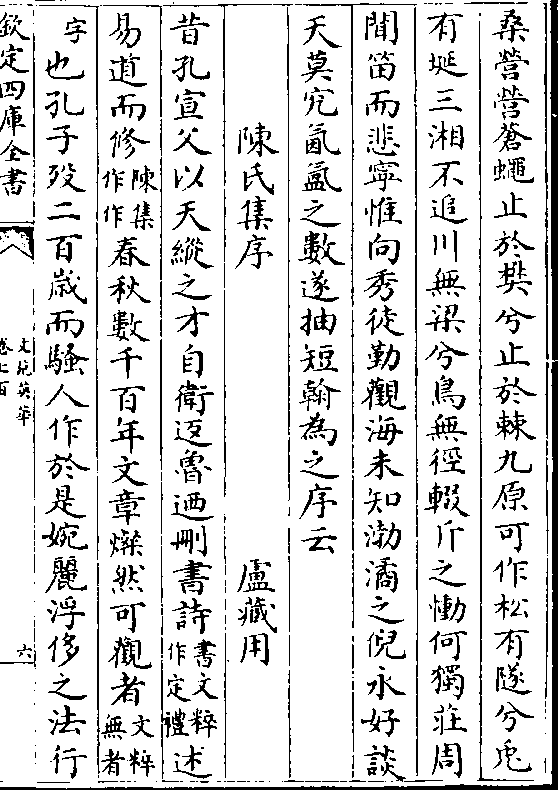 桑營營蒼蠅止於樊兮止於棘九原可作松有隧兮兎
有埏三湘不追川無梁兮鳥無徑輟斤之慟何獨莊周
聞笛而悲寜惟向秀徒勤觀海未知渤澥之倪永好談
天莫究氤氲之數遂抽短翰為之序云
陳氏集序 盧藏用
昔孔宣父以天縱之才自衛返魯迺刪書詩書文粹作定禮述
易道而修陳集作作春秋數千百年文章燦然可觀者文粹無者
字也孔子歿二百歳而騷人作於是婉麗浮侈之法行
欽定四庫全書
文苑英華
卷七百
六